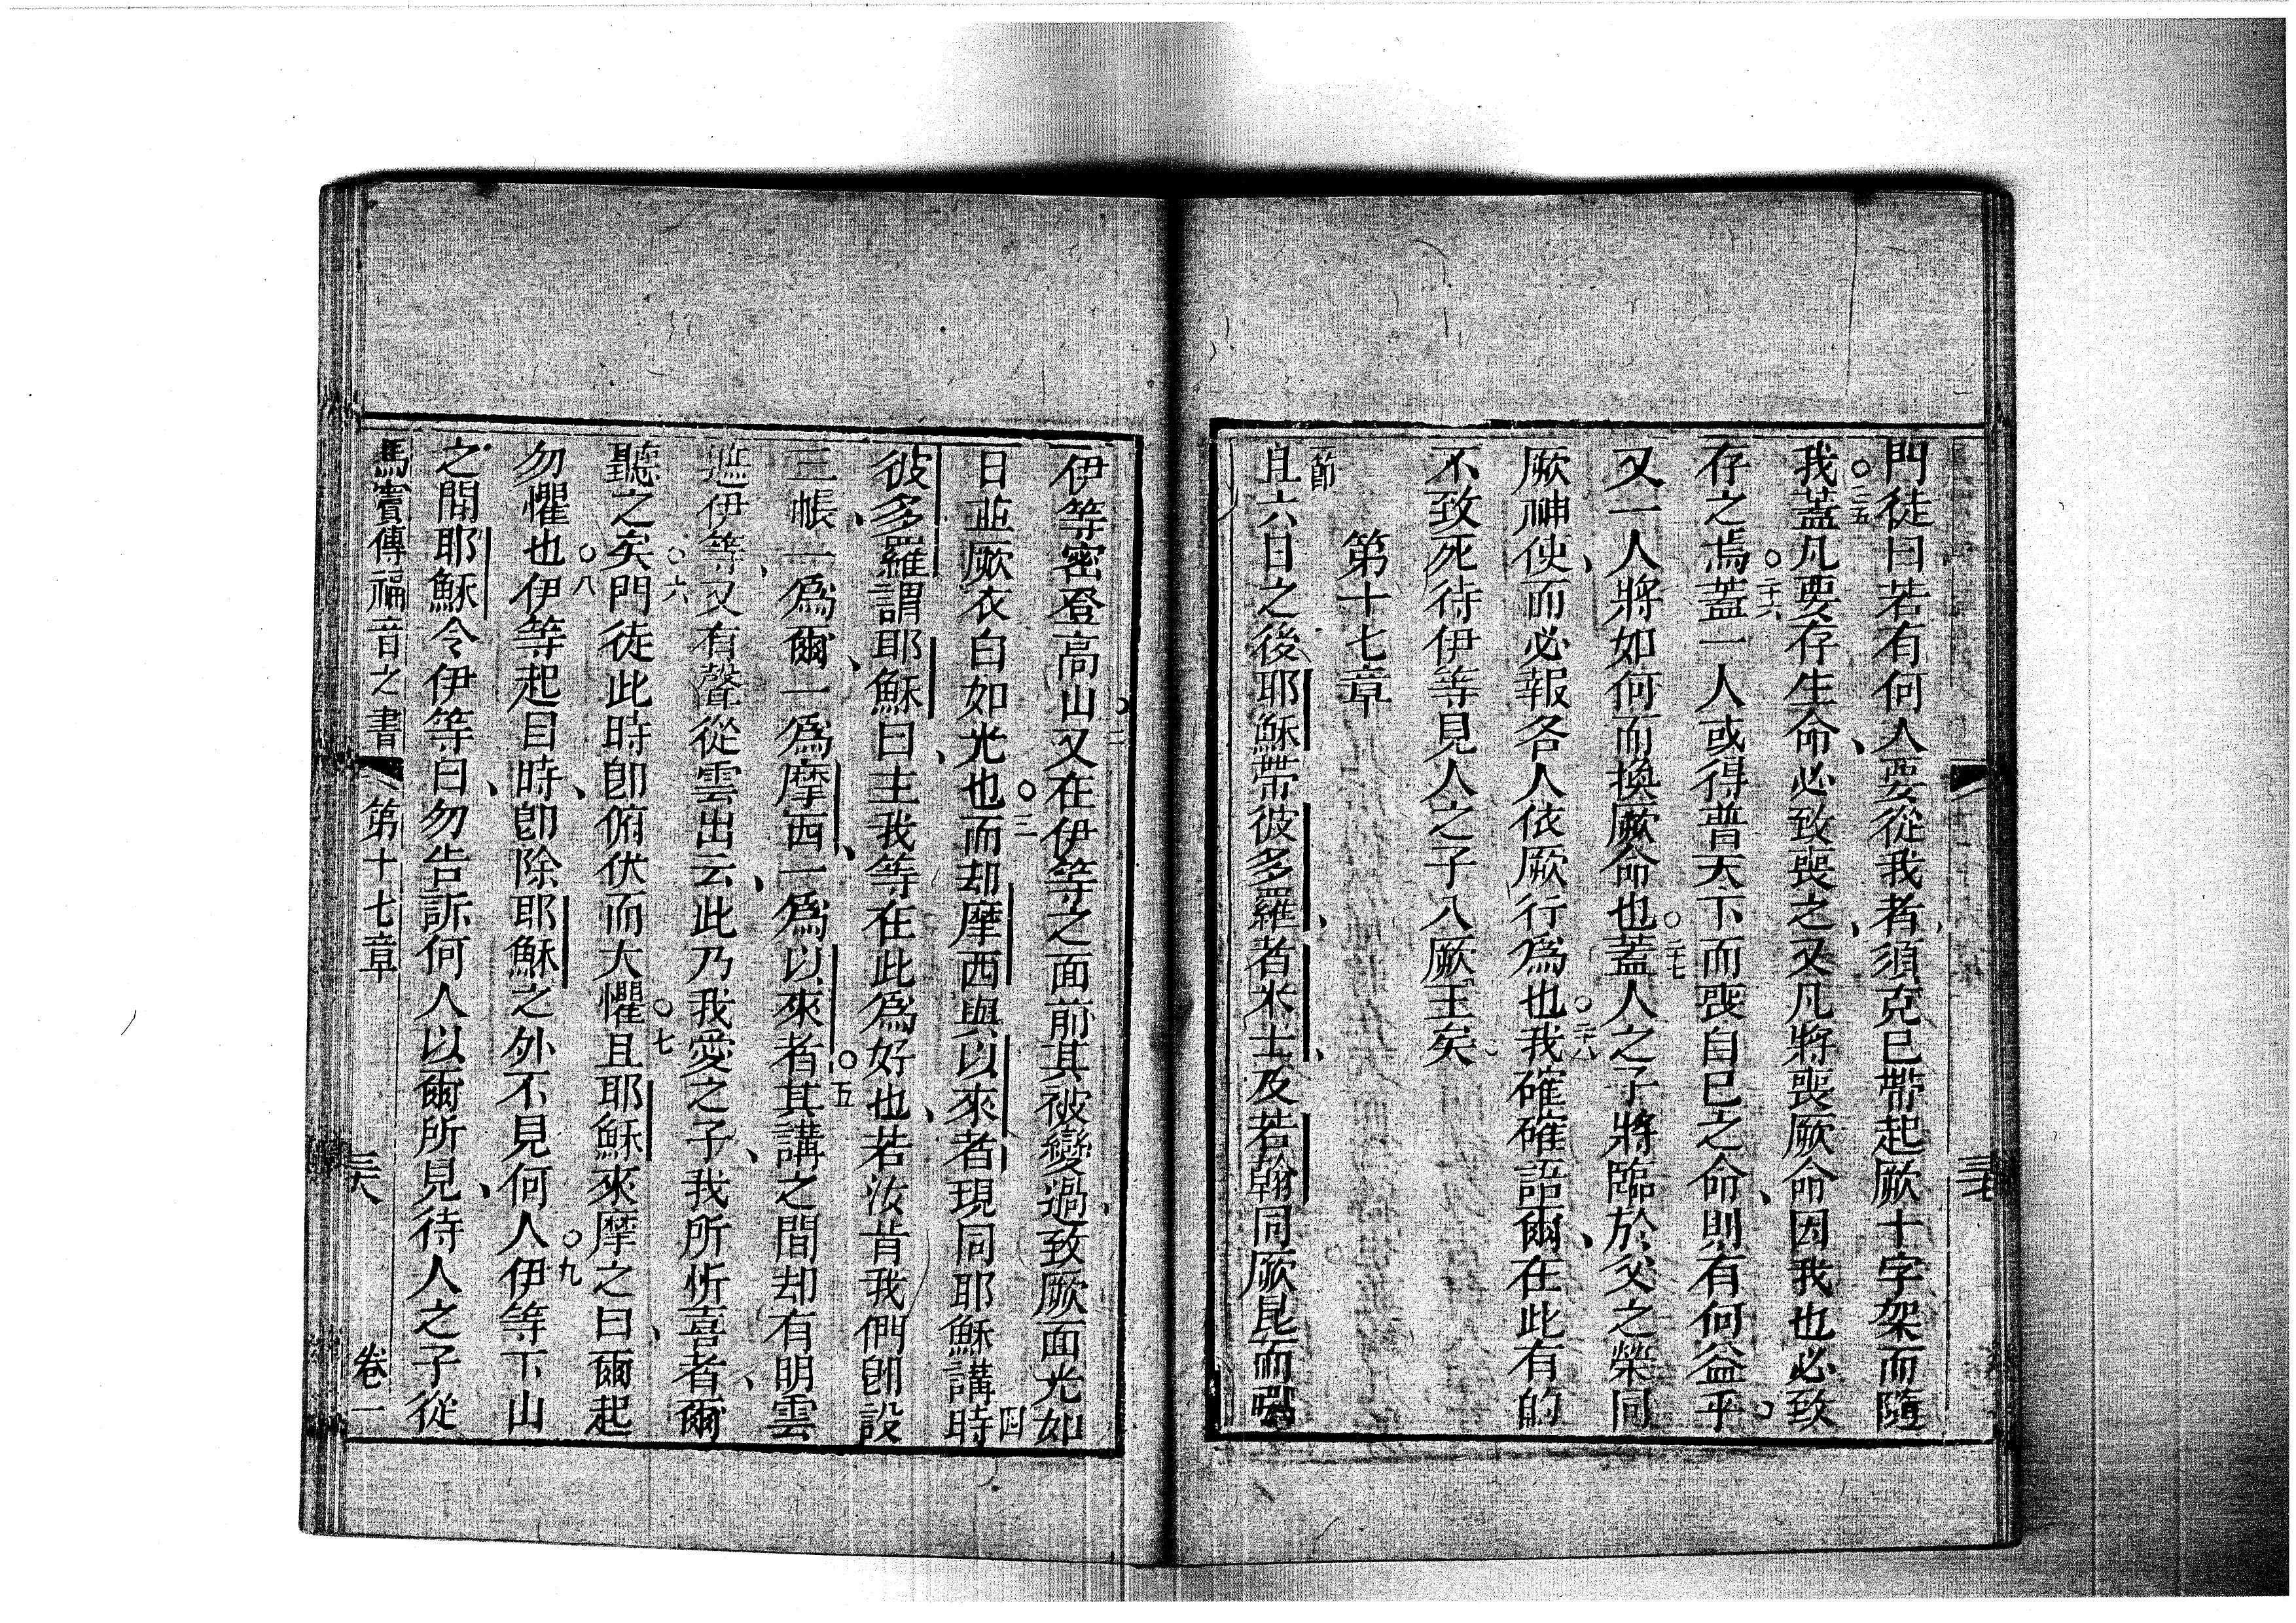 三七
門徒曰若有何人要從我者須克己帶起厥十字架而隨
我○二五蓋凡要存生命必致喪之又凡將喪厥命因我也必致
存之焉○二十六蓋一人或得普天下而喪自己之命則有何益乎
又一人將如何而換厥命也○二十七蓋人之子將臨於父之榮同
厥神使而必報各人依厥行爲也○二十八我確確語爾在此有的
不致死待伊等見人之子入厥王矣
第十七章
節
且六日之後耶穌帶彼多羅者米士及若翰同厥昆而
伊等密登高山○二又在伊等之面前其被變過致厥面光如
日並厥衣白如光也○三而却摩西與以來者現同耶穌講時四
彼多羅謂耶穌曰主我等在此爲好也若汝肯我們即設
三帳一爲爾一爲摩西一爲以來者○五其講之間却有明雲
遮伊等又有聲從雲出云此乃我愛之子我所忻喜者爾
聽之矣○六門徒此時即俯伏而大懼○七且耶穌來摩之曰爾起
勿懼也○八伊等起目時即除耶穌之外不見何人○九伊等下山
之間耶穌令伊等曰勿告訴何人以爾所見待人之子從
馬竇傳福音之書 第十七章 三八 卷一